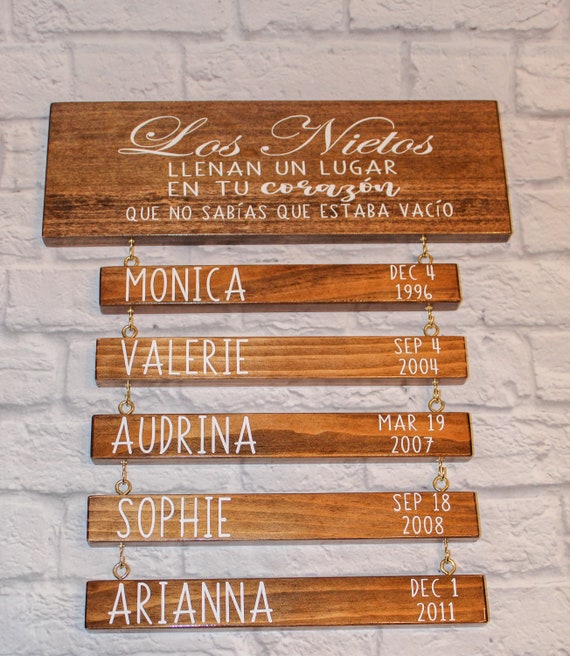 Los Nietos
LLENAN UN LUGAR
EN TU corazón
QUE NO SABÍAS QUE ESTABA VACÍO
MONICA DEC 4
1996
VALERIE SEP 4
2004
AUDRINA MAR 19
2007
SOPHIE SEP 18
2008
ARIANNA DEC 1
2011